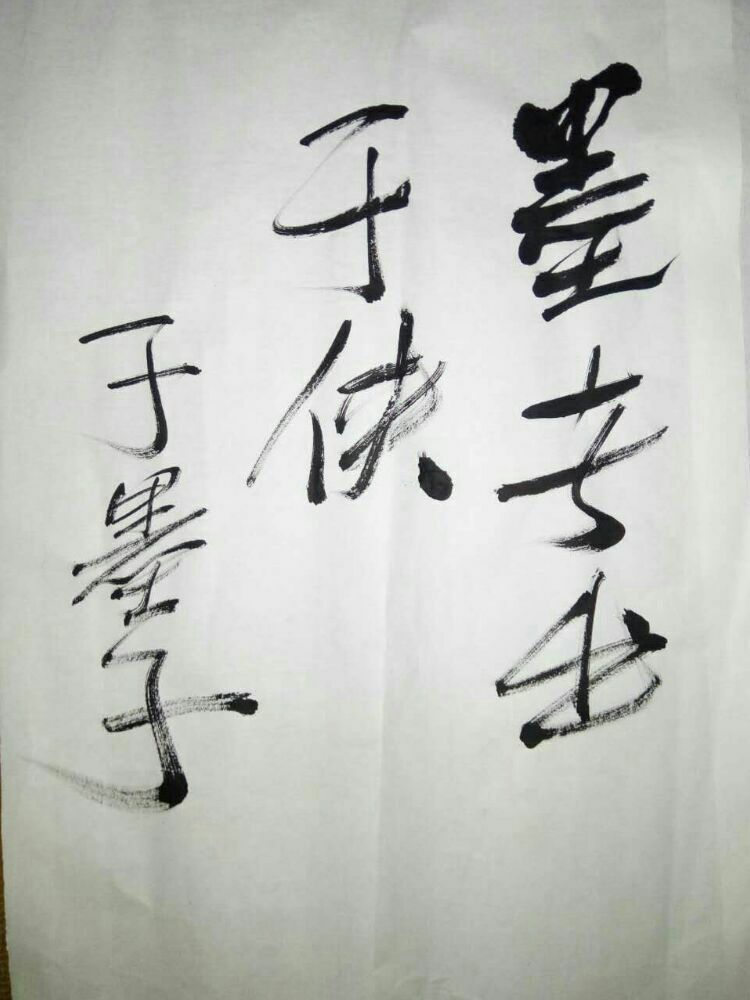 墨者出
于侠
于墨子